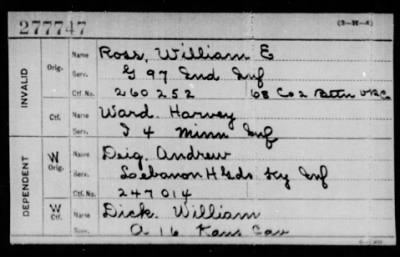 277747 (3-H-8)
INVALID
Orig. Name Ross, William E
Serv. G 97 Ind Inf
Ctf. No. 260252 68 Co 2 Battn V.R.C.
Ctf. Name Ward. Harvey
Serv. I 4 Minn Inf
DEPENDENT
W Orig. Name Deig. Andrew
Serv. Lebanon H Gds Ky Inf
Ctf. No. 247014
W Ctf. Name Dick. William
Serv. A 16 Kans Cav